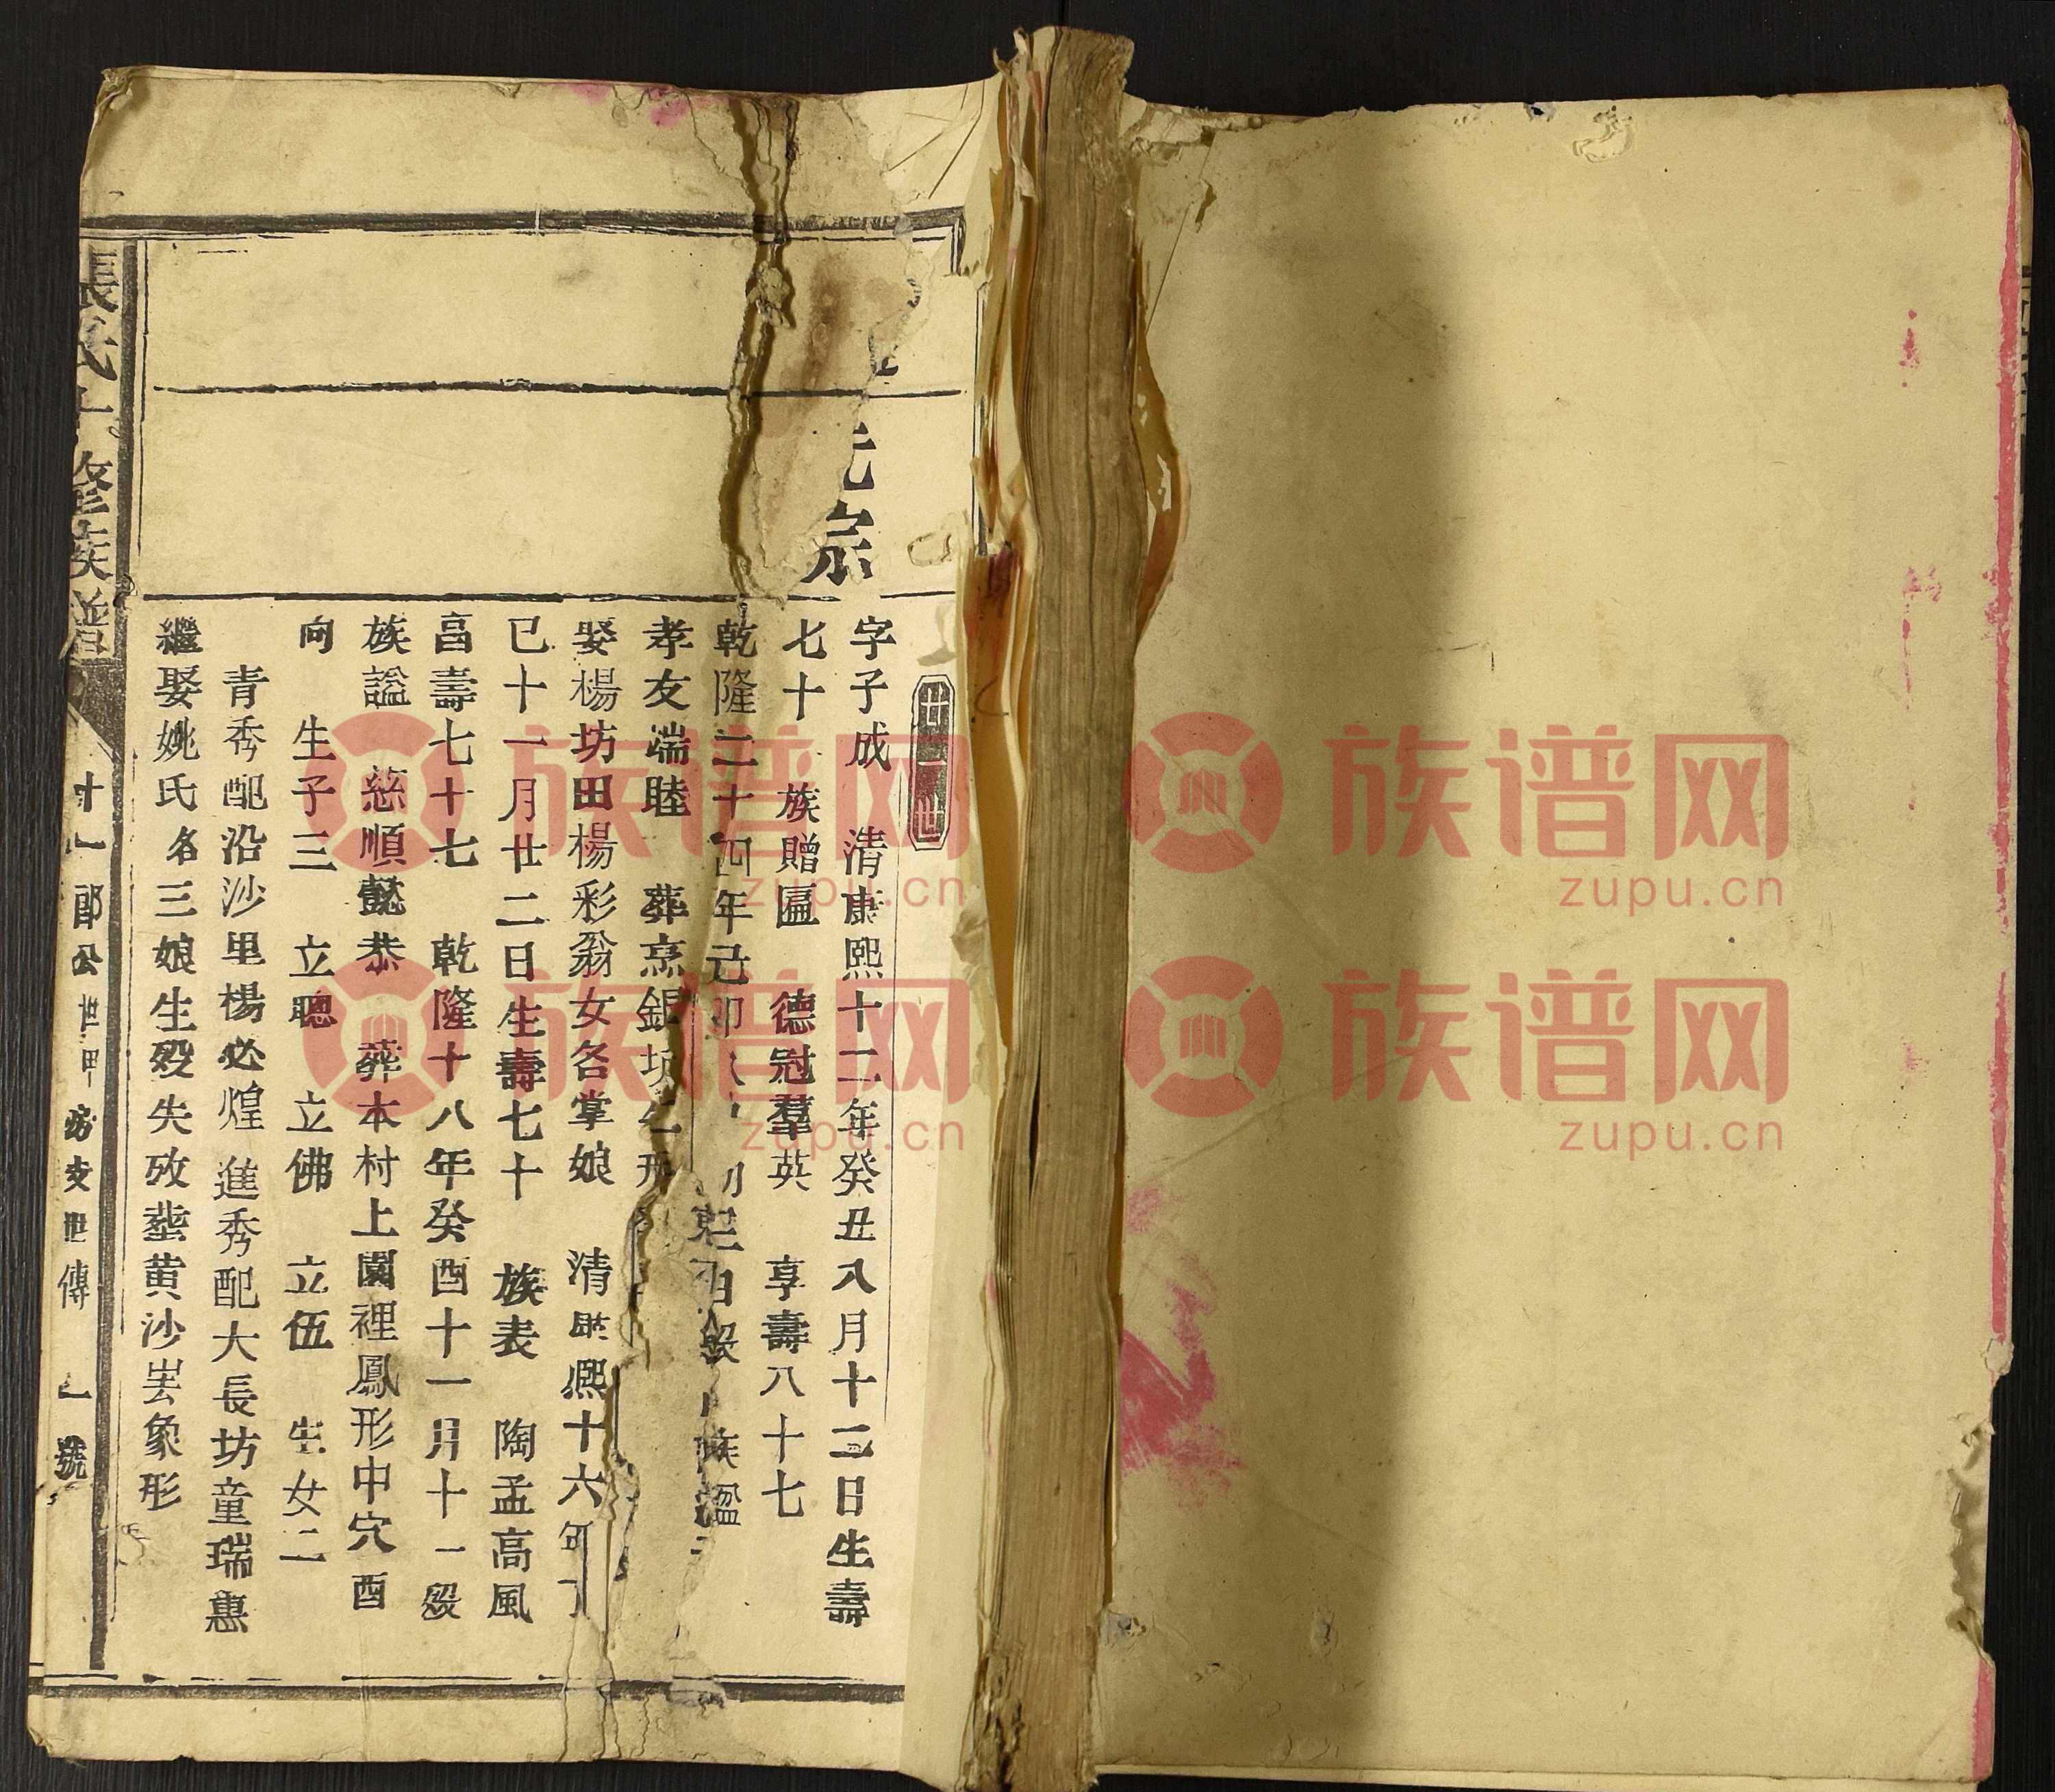 廿一世
宗
字子成　清康熙十二年癸丑八月十二日生壽
七十　族贈匾　德冠羣英　享壽八十七
乾隆二十四年己卯
孝友端睦　葬烹銀坑
娶楊坊田楊彩翁女名掌娘　清康熙十六年丁
巳十一月廿二日生壽七十　族表　陶孟高風
昌壽七十七　乾隆十八年癸酉十一月十一殁
族謚　慈順懿恭　葬本村上園裡鳳形中穴酉
向　生子三　立聰　立佛　立伍　生女二
青秀配沿沙里楊必煌　進秀配大長坊童瑞惠
繼娶姚氏名三娘生殁失攷塟黄沙坣象形
張氏　修族譜
十一郎公世甲房支世傳　一號
族谱网
zupu.cn
族谱网
zupu.cn
族谱网
zupu.cn
族谱网
zupu.cn